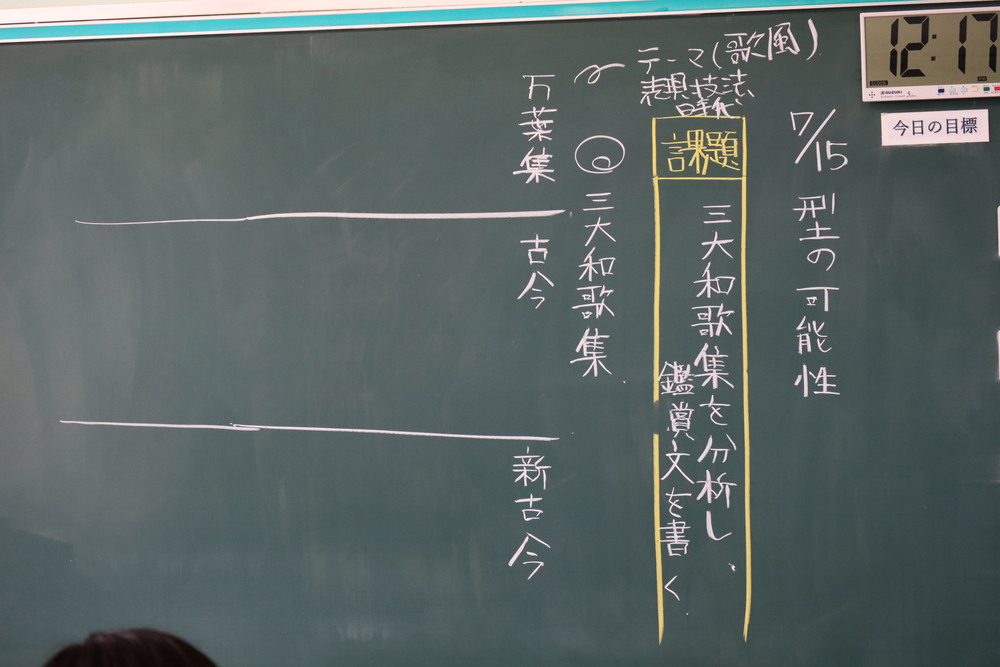 12:17
今日の目標
7/15 型の可能性
課題
三大和歌集を分析し、
鑑賞文を書く
テーマ(歌風)
表現技法
時代
三大和歌集
万葉集
古今
新古今